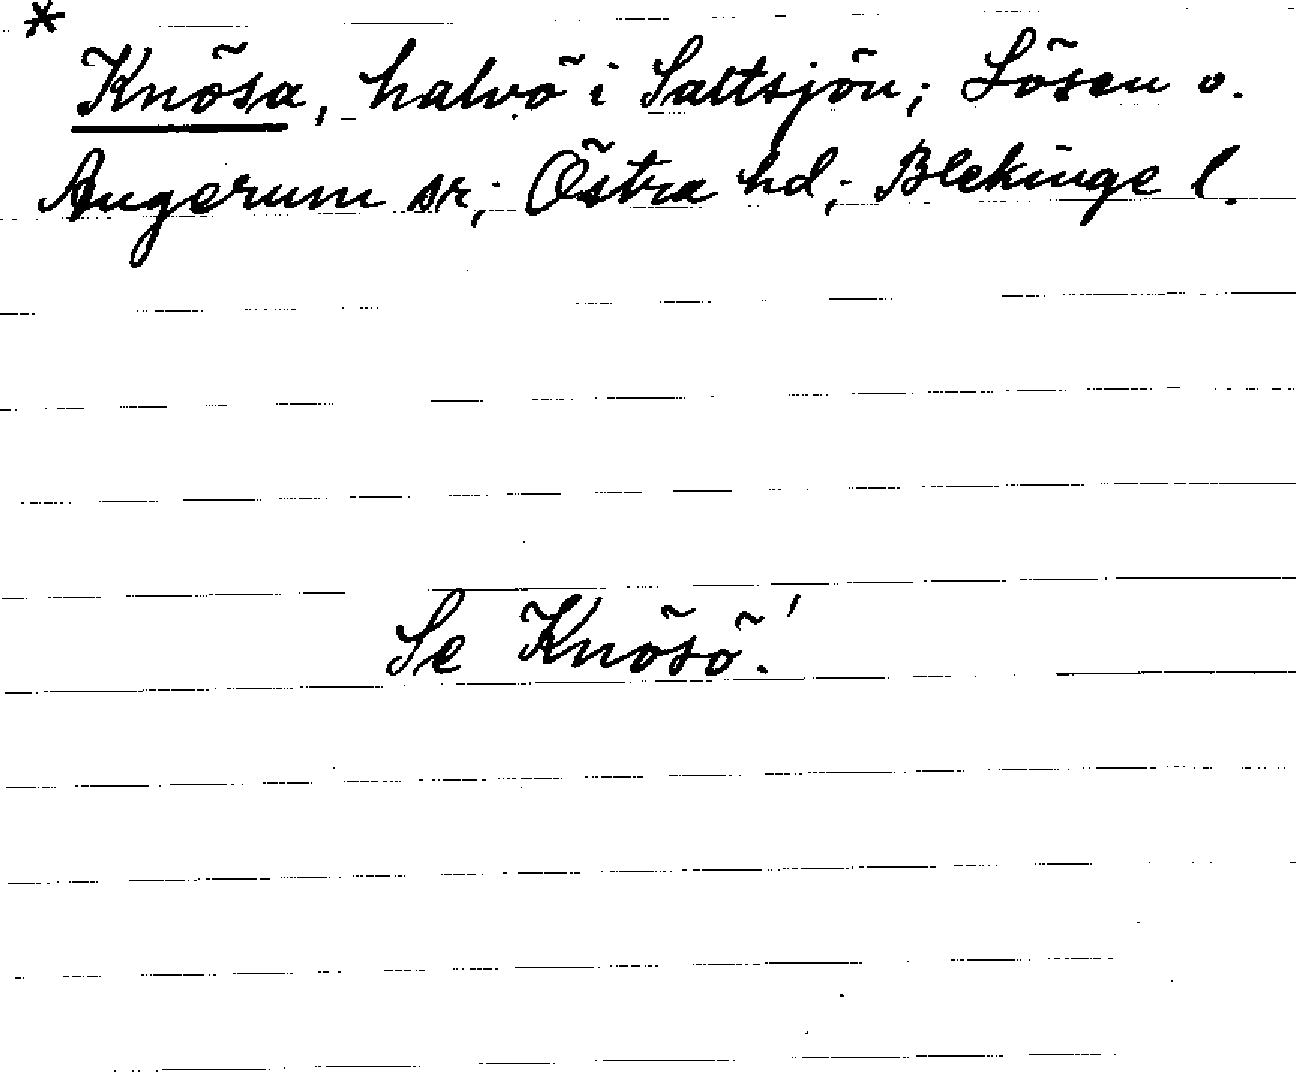 *
Knösa, halvö i Saltsjön; Lösen o.
Augerum sr; Östra hd; Blekinge l.
Se Knösö!